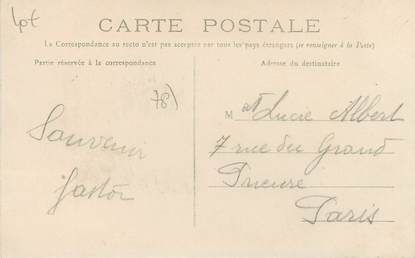 Lot
CARTE POSTALE
La Correspondance au recto n'est pas acceptée par tous les pays étrangers (se renseigner à la Poste)
Partie réservée à la correspondance
Adresse du destinataire
78)
Souvenir
Gaston
M Lucie Albert
7 rue du Grand
Prieuré
Paris